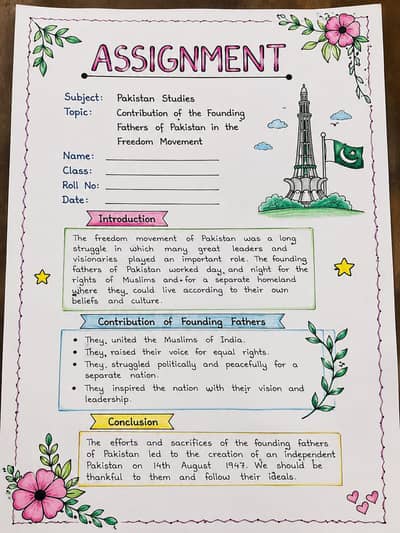 ASSIGNMENT
Subject: Pakistan Studies
Topic: Contribution of the Founding
Fathers of Pakistan in the
Freedom Movement
Name:
Class:
Roll No:
Date:
Introduction
The freedom movement of Pakistan was a long
struggle in which many great leaders and
visionaries played an important role. The founding
fathers of Pakistan worked day and night for the
rights of Muslims and for a separate homeland
where they could live according to their own
beliefs and culture.
Contribution of Founding Fathers
• They united the Muslims of India.
• They raised their voice for equal rights.
• They struggled politically and peacefully for a
separate nation.
• They inspired the nation with their vision and
leadership.
Conclusion
The efforts and sacrifices of the founding fathers
of Pakistan led to the creation of an independent
Pakistan on 14th August 1947. We should be
thankful to them and follow their ideals.